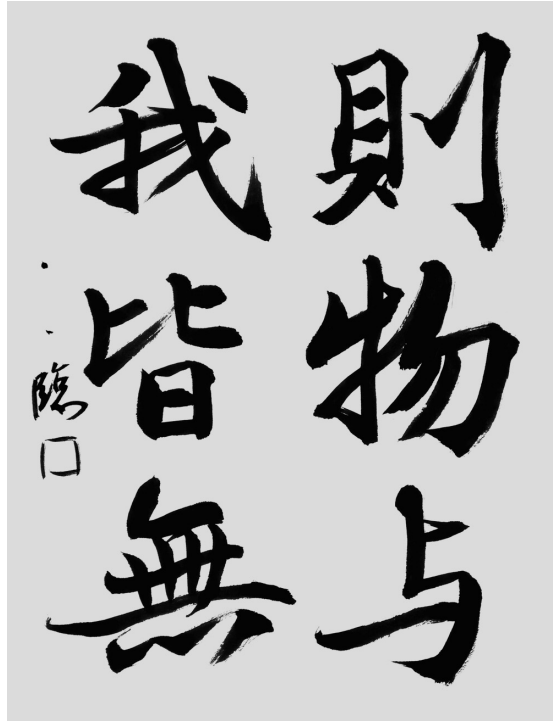 則物与
我皆無
臨